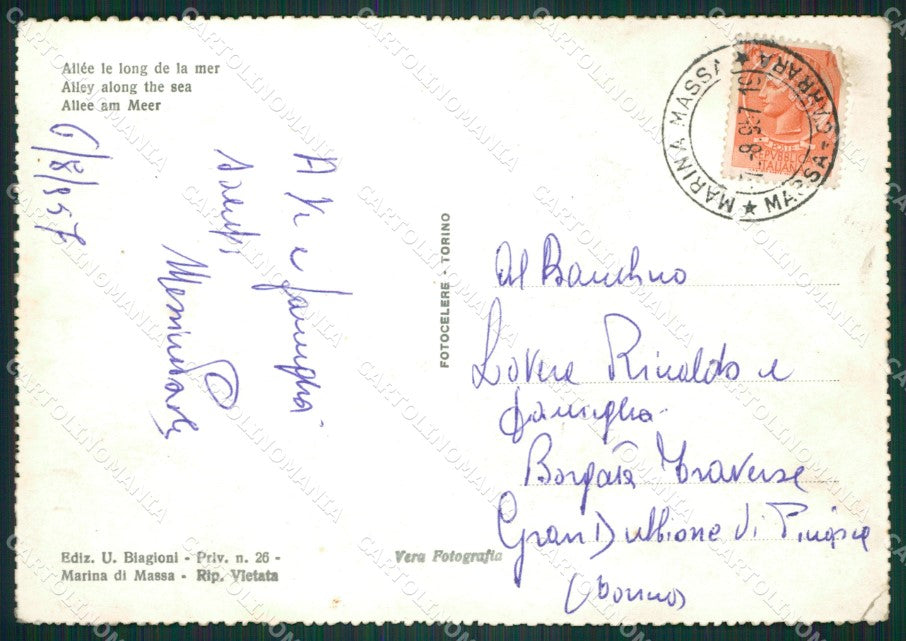 Allée le long de la mer
Alley along the sea
Allee am Meer
6/8/957
A te e famiglia
saluti
FOTOCELERE - TORINO
MARINA MASSA ★ MASSA-CARRARA ★
-8.57
POSTE
REPUBBLICA
ITALIANA
Al Bambino
Lovera Rinaldo e
famiglia
Borgata Traverse
Gran Dubbione di Pinasca
(Torino)
Ediz. U. Biagioni - Priv. n. 26 -
Marina di Massa - Rip. Vietata
Vera Fotografia
CARTOLINOMANIA